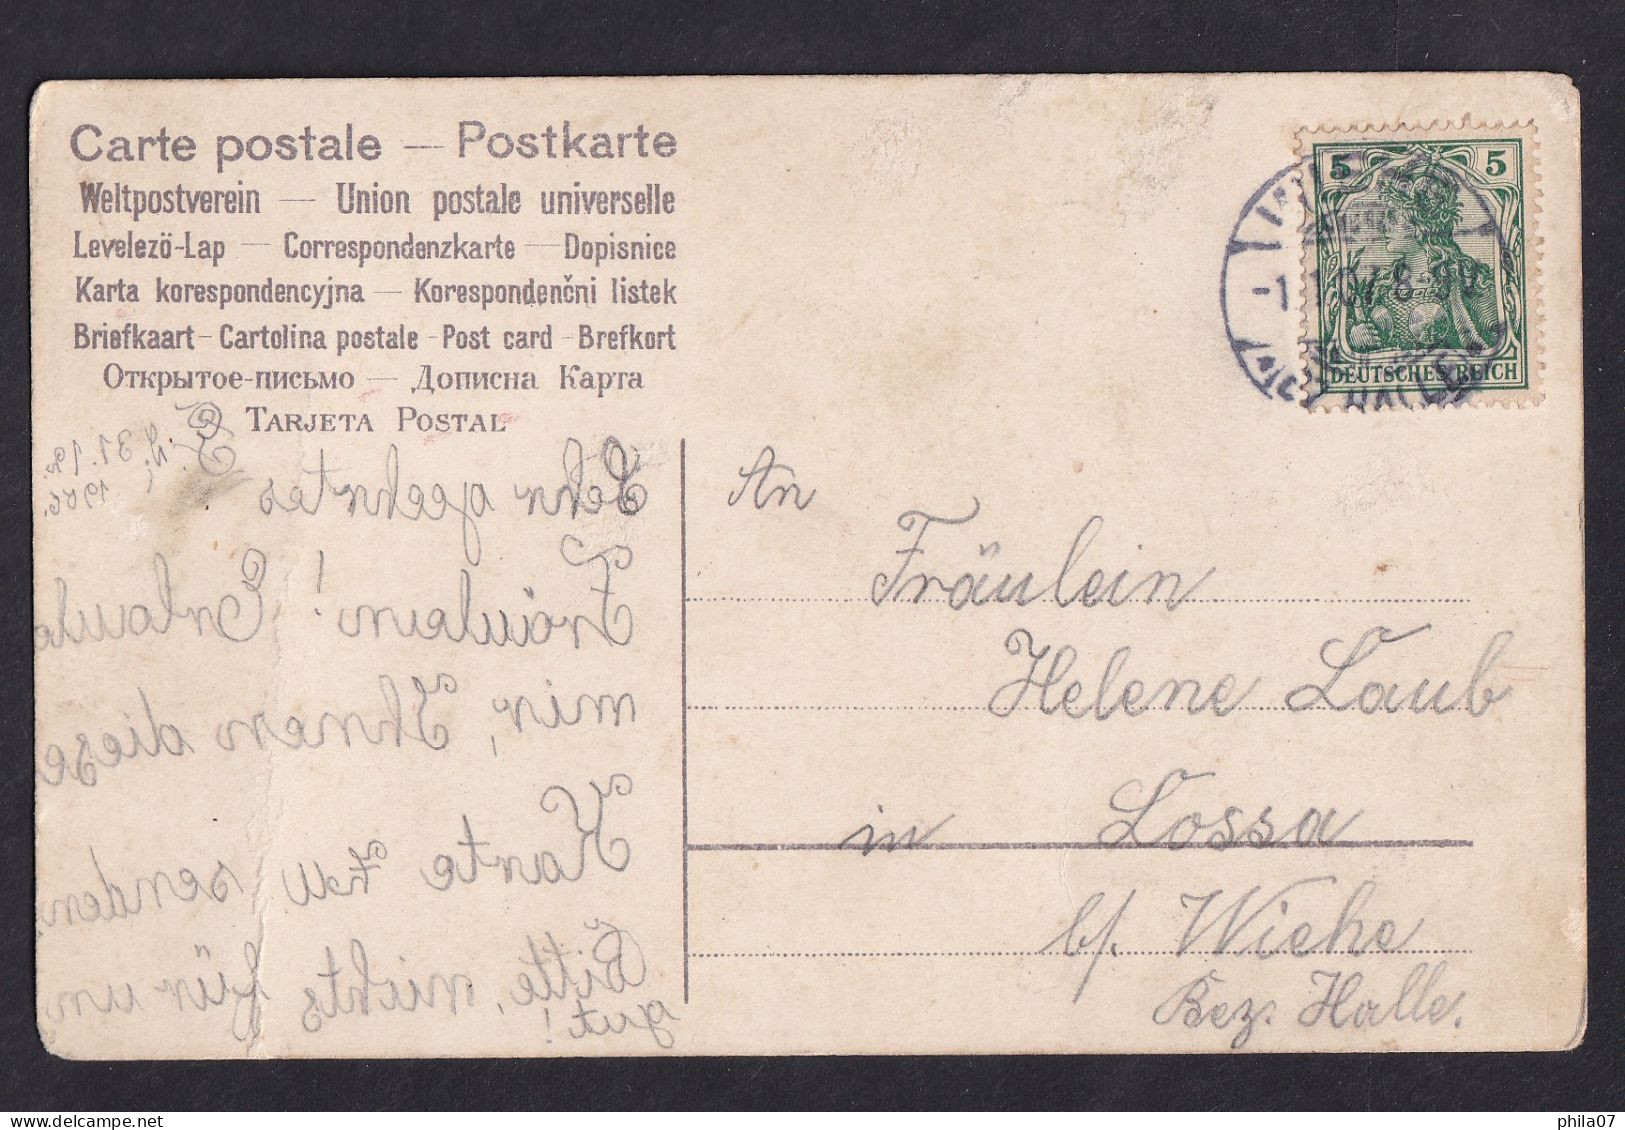 Carte postale — Postkarte
Weltpostverein — Union postale universelle
Levelező-Lap — Correspondenzkarte — Dopisnice
Karta korespondencyjna — Korespondenčni listek
Briefkaart - Cartolina postale - Post card - Brefkort
Открытое-письмо — Дописна Карта
TARJETA POSTAL
31.12.
1906.
Sehr geehrtes
Fräulein! Erlaube
mir, Ihnen diese
Karte zu senden.
Bitte, nichts für un
gut!
An
Fräulein
Helene Laub
in Lossa
b/. Wiehe
Bez. Halle.
5 5
DEUTSCHES REICH
-1.1.07 8-9V
phila07